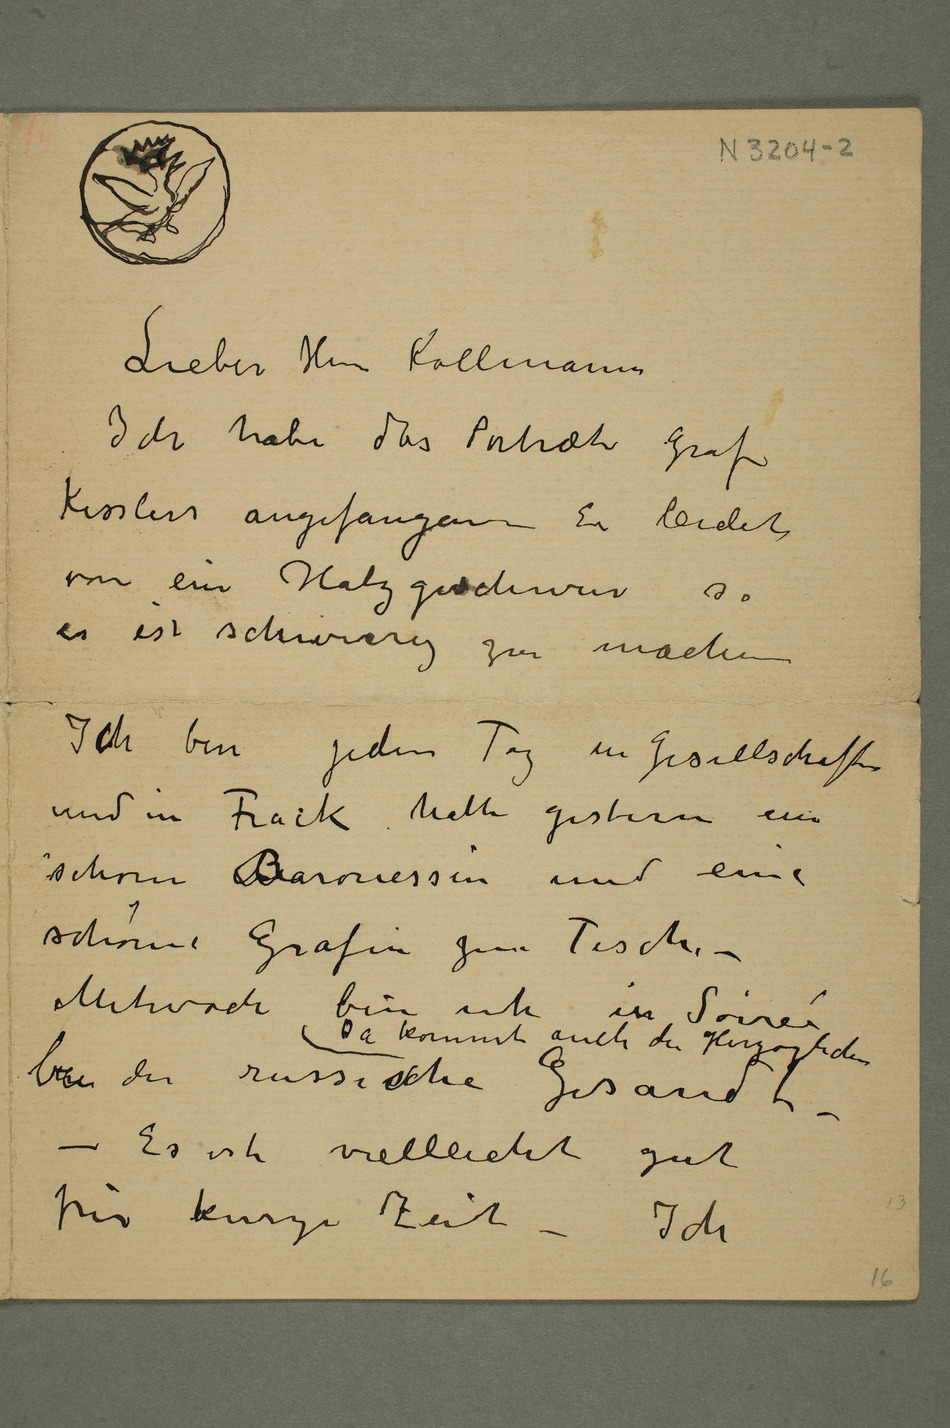 N 3204-2
Lieber Herr Kollmann
Ich habe das Portræt Graf
Kesslers angefangen Er leidet
von ein Halzgeschwür so
es ist schwierig zu machen
Ich bin jeden Tag in Gesellschaft
und in Frack hatte gestern ein
schöne Baronessin und eine
schöne Gräfin zu Tisch –
Mitwoch bin ich in Soireé
(Da kommt auch die Herzoglichen
bei der russische Gesandt –
– Es ist vielleicht gut
für kurze Zeit – Ich
13
16